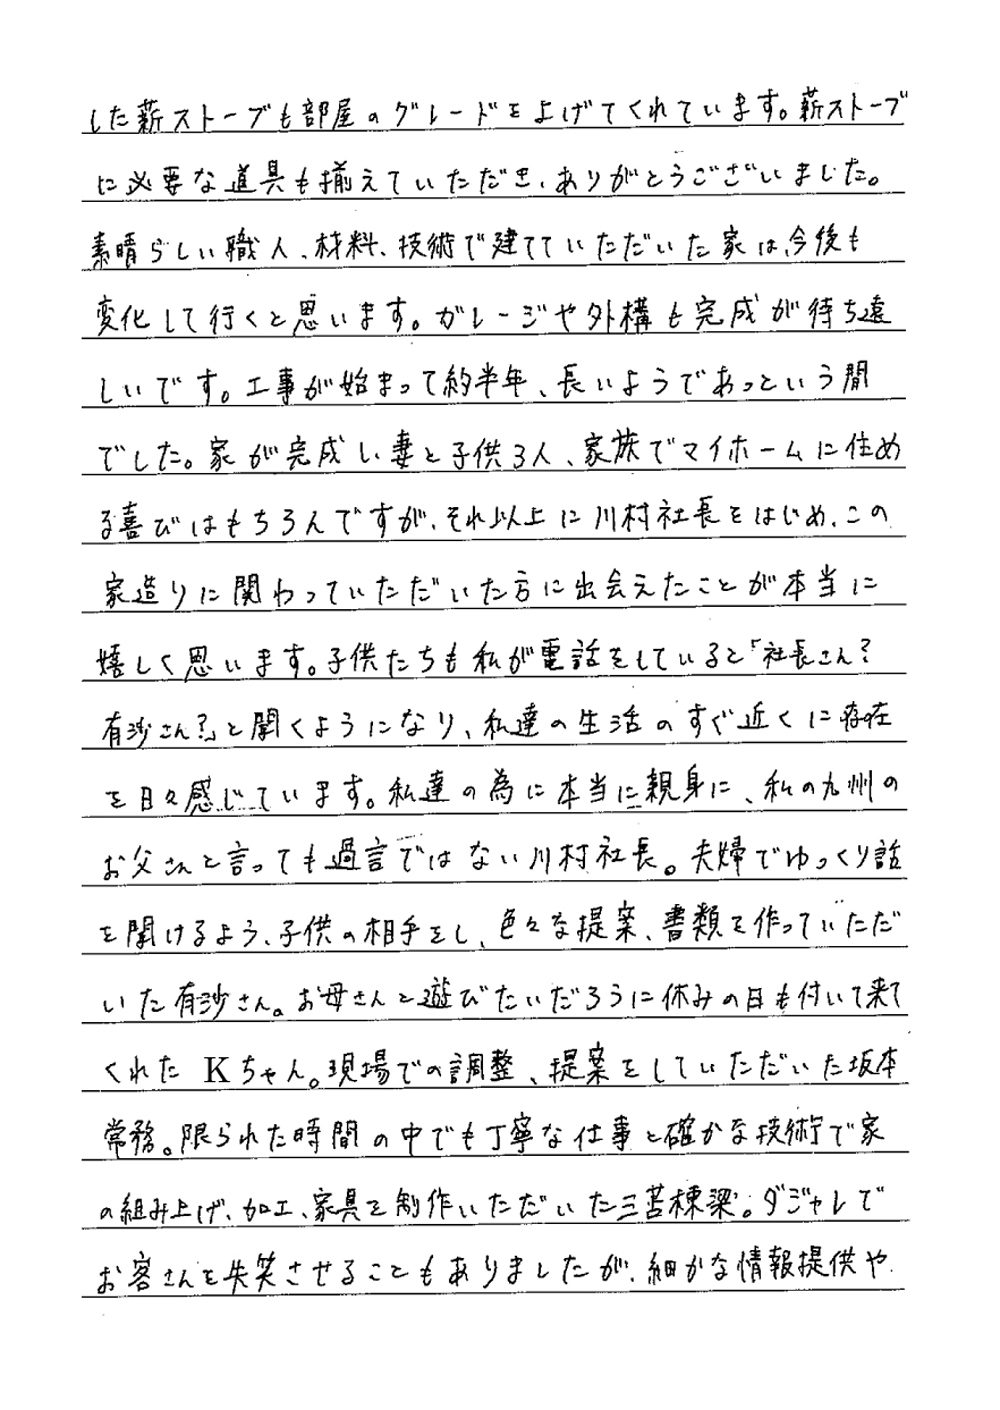 した薪ストーブも部屋のグレードを上げてくれています。薪ストーブ
に必要な道具も揃えていただき、ありがとうございました。
素晴らしい職人、材料、技術で建てていただいた家は、今後も
変化して行くと思います。ガレージや外構も完成が待ち遠
しいです。工事が始まって約半年、長いようであっという間
でした。家が完成し、妻と子供3人、家族でマイホームに住め
る喜びはもちろんですが、それ以上に川村社長をはじめ、この
家造りに関わっていただいた方に出会えたことが本当に
嬉しく思います。子供たちも私が電話をしていると「社長さん?
有沙さん?」と聞くようになり、私達の生活のすぐ近くに存在
を日々感じています。私達の為に本当に親身に、私の九州の
お父さんと言っても過言ではない川村社長。夫婦でゆっくり話
を聞けるよう、子供の相手をし、色々な提案、書類を作っていただ
いた有沙さん。お母さんと遊びたいだろうに休みの日も付いて来て
くれたKちゃん。現場での調整、提案をしていただいた坂本
常務。限られた時間の中でも丁寧な仕事と確かな技術で家
の組み上げ、加工、家具を制作いただいた三苫棟梁。ダジャレで
お客さんを失笑させることもありましたが、細かな情報提供や